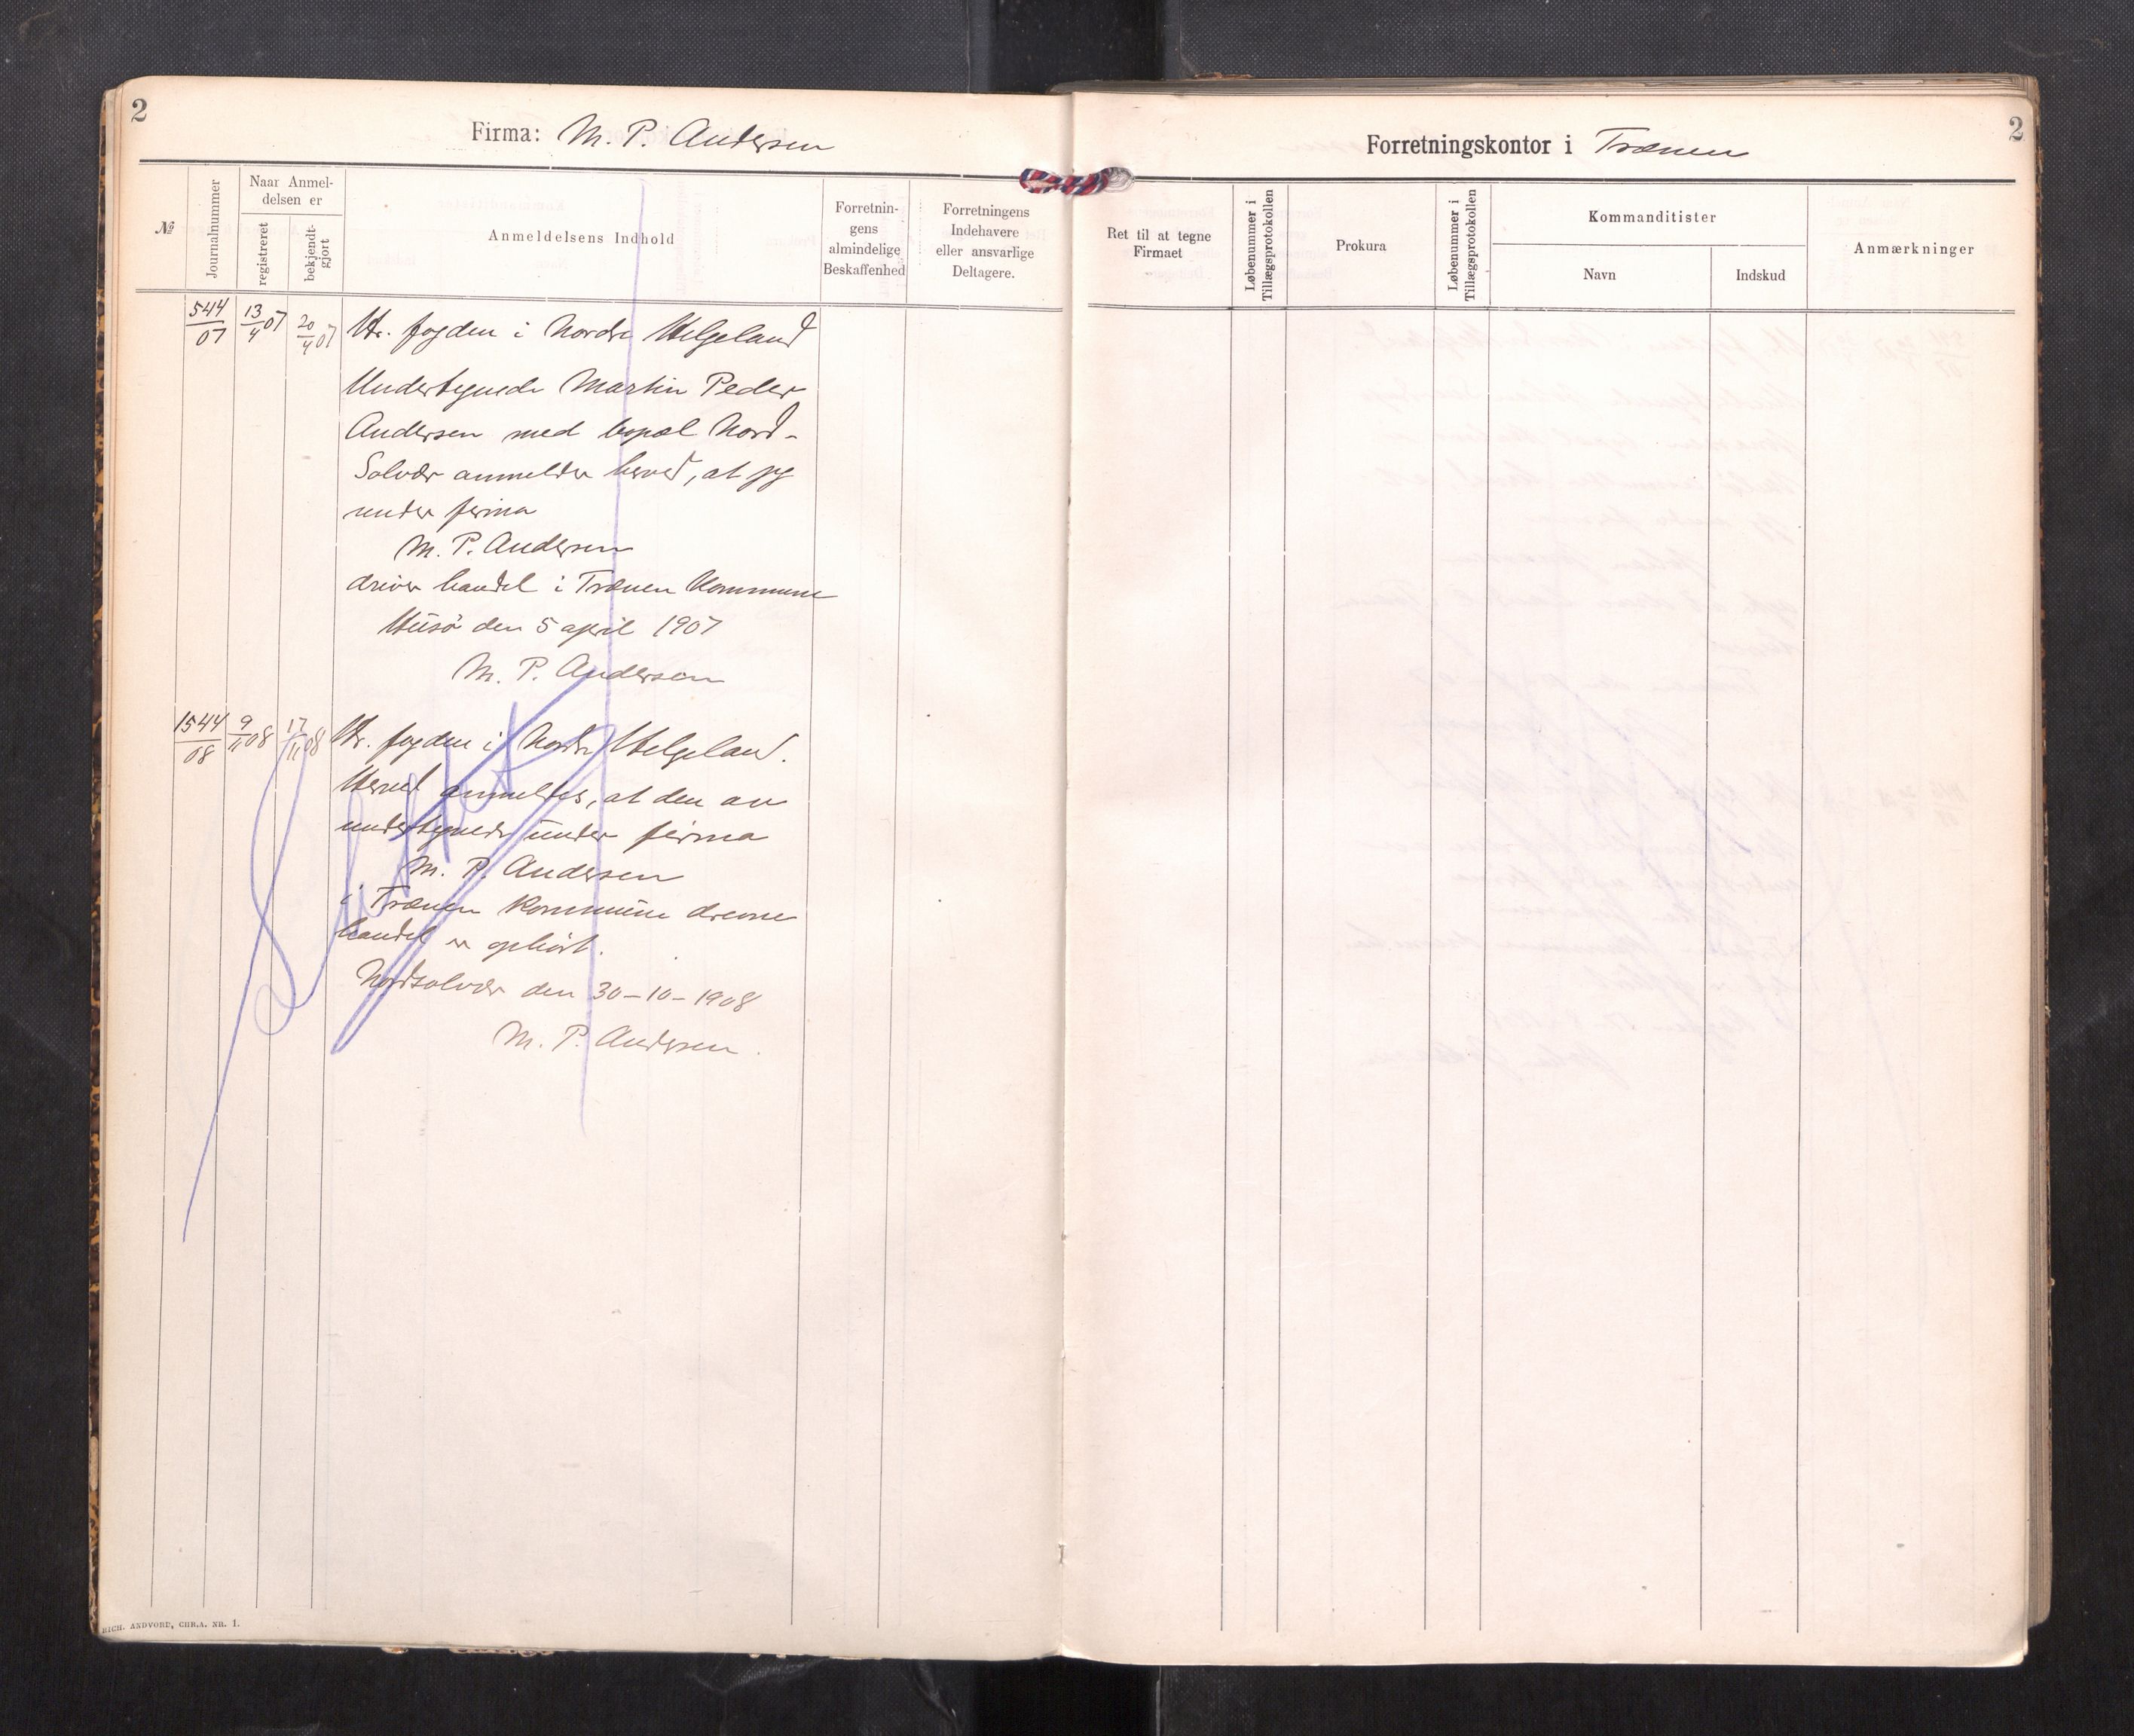 2
Firma: M. P. Andersen
№
Journalnummer
Naar Anmel-
delsen er
registreret
bekjendt-
gjort
Anmeldelsens Indhold
Forretnin-
gens
almindelige
Beskaffenhed
Forretningens
Indehavere
eller ansvarlige
Deltagere.
544/07
13/4 07
20/4 07
Hr. fogden i Nordre Helgeland
Undertegnede Martin Peder
Andersen med bopæl Nord-
Solvær anmelder herved, at jeg
under firma
M. P. Andersen
driver handel i Trænen Kommune
Husö den 5 april 1907
M. P. Andersen
1544/08
9/11 08
17/11 08
Hr. fogden i Nordre Helgeland.
Herved anmeldes, at den av
undertegnede under firma
M. P. Andersen
i Trænen kommune drevne
handel er ophørt.
Nordsolvær den 30-10-1908
M. P. Andersen.
Slettet
RICH. ANDVORD, CHR.A. NR. 1.
Forretningskontor i Trænen
2
Ret til at tegne
Firmaet
Løbenummer i
Tillægsprotokollen
Prokura
Løbenummer i
Tillægsprotokollen
Kommanditister
Navn
Indskud
Anmærkninger